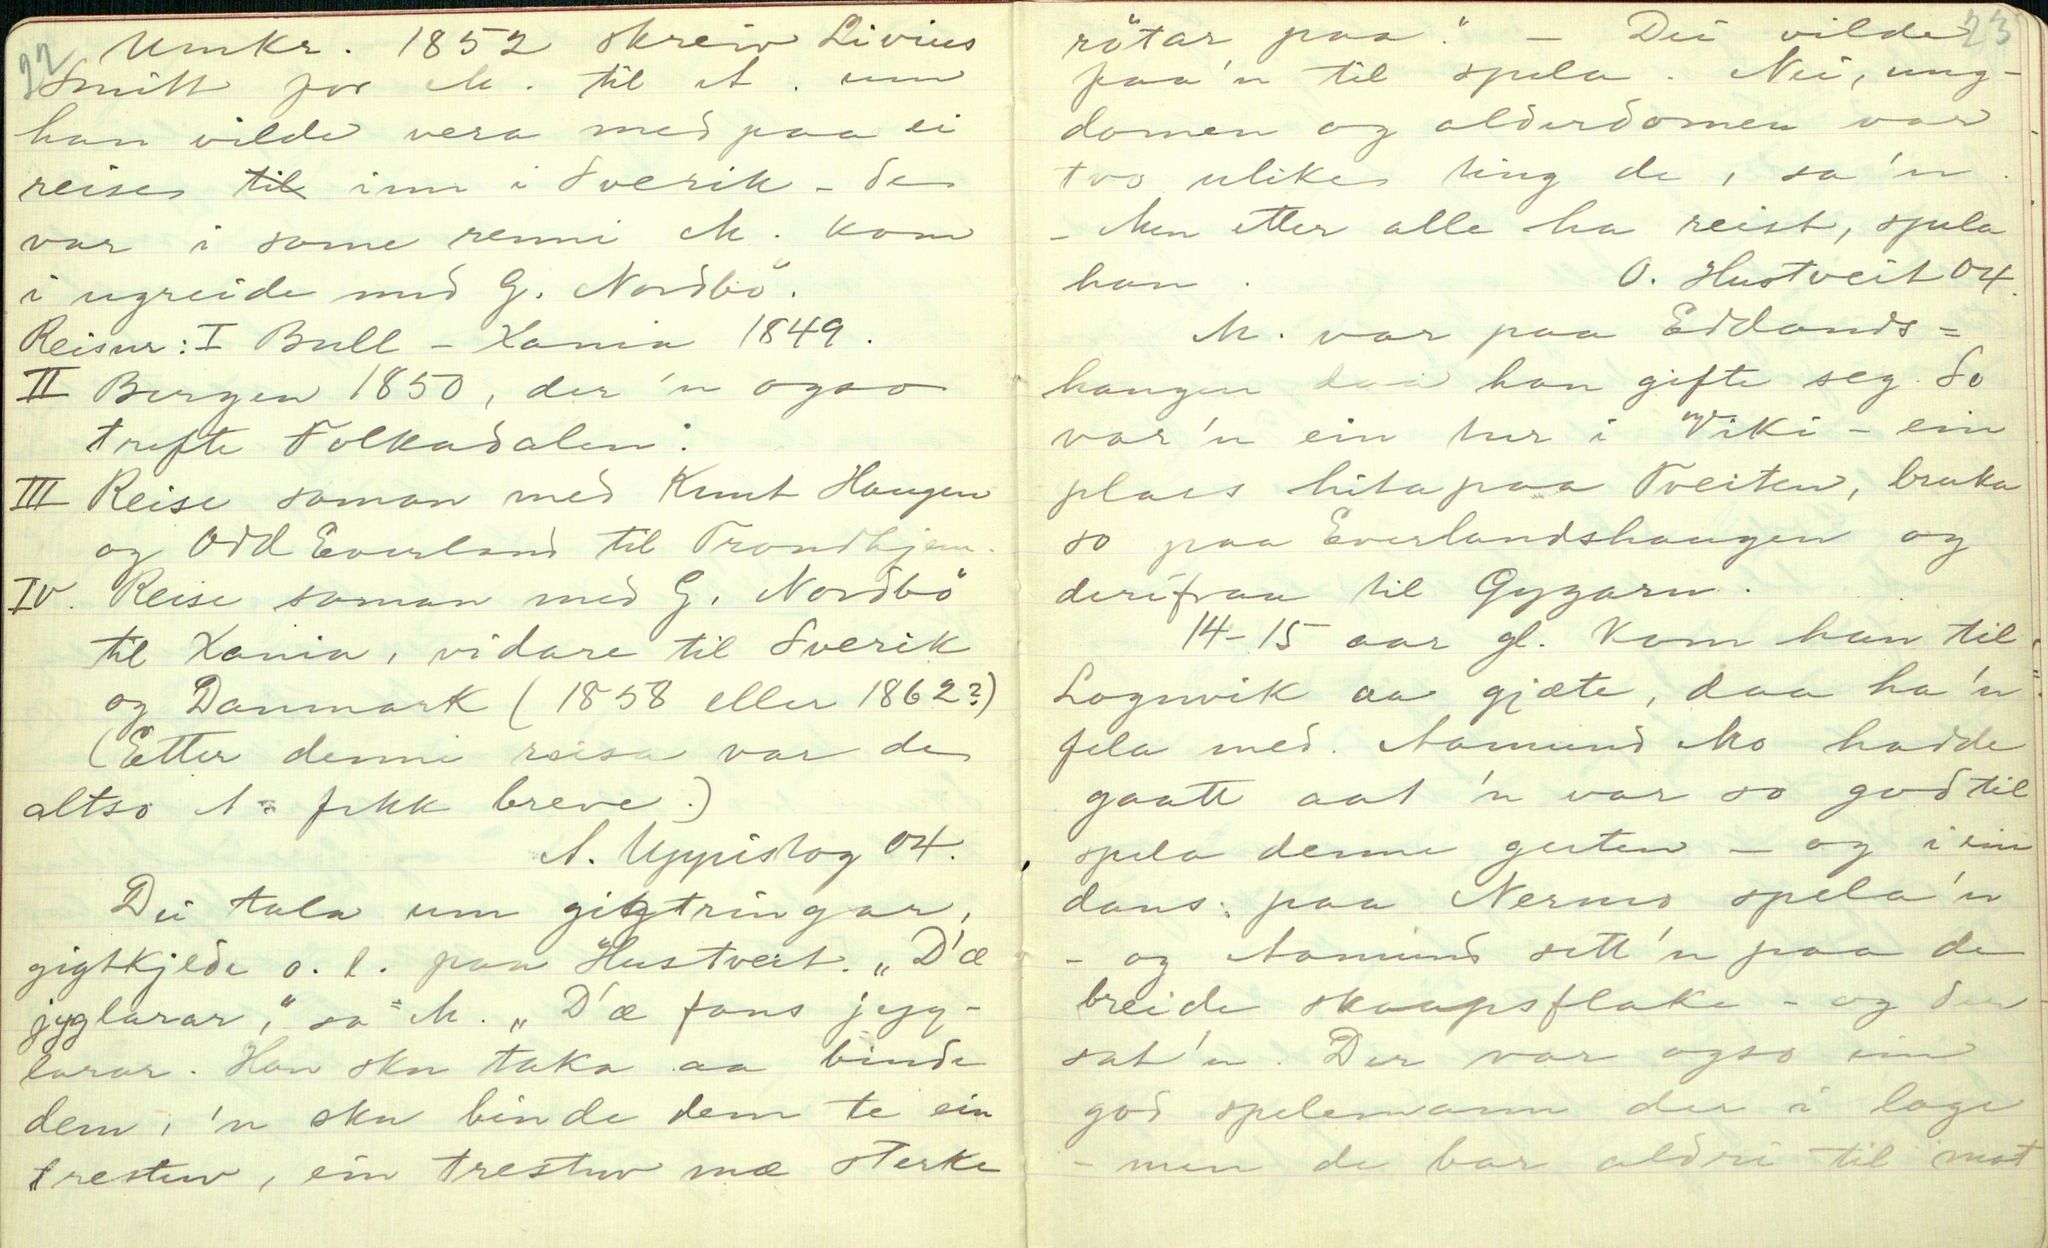 22
Umkr. 1852 skreiv Livius
Smitt for M. til A. um
han vilde vera med paa ei
reise til inn i Sverik - de
var i some renni M. kom
i ugreide med G. Nordbö.
Reisur: I Bull - Xania 1849.
II Bergen 1850, der 'n ogso
trefte Folkadalen.
III Reise saman med Knut Haugen
og Odd Everland til Trondhjem.
IV. Reise saman med G. Nordbö
til Xania, vidare til Sverik
og Danmark (1858 eller 1862?)
(Etter denne reisa var de
altso A. fekk breve.)
A. Uppistog 04.
Dei tala um gigtringar,
gigtkjede o. l. paa Hustveit. „D'æ
jyglarar," sa M. „D'æ fans jyg-
larar. Han sku taka aa binde
dem, 'n sku binde dem te ein
trestuv, ein trestuv mæ sterke
23
rötar paa." - Dei vilde
paa'n til spela. Nei, ung-
domen og alderdomen var
tvo ulike ting de, sa'n.
- Men etter alle ha reist, spela
han. O. Hustveit 04.
M. var paa Edlands-
haugen daa han gifte seg. So
var'n ein tur i Viki - ein
plass hita paa Tveiten, bruka
so paa Everlandshaugen og
derifraa til Gygarn.
14-15 aar gl. kom han til
Lognvik aa gjæte, daa ha'n
fela med. Aamund Mo hadde
gaatt aat 'n var so god til
spela denne guten - og i ein
dans paa Nermo spela'n
- og Aamund sett'n paa de
breide skaapsflake - og der
sat'n. Der var ogso ein
god spelemann der i lage
- men de bar aldri til mot